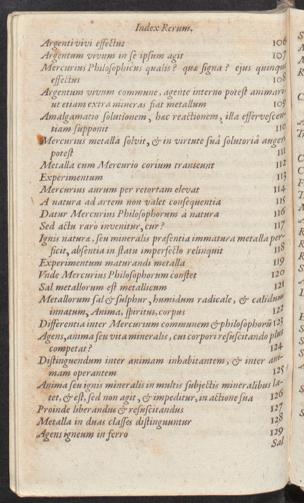 Index Rerum.
Argenti vivi effectus 106
Argentum vivum in se ipsum agit 107
Mercurius Philosophicus qualis? quæ signa? ejus quinque
effectus 108
Argentum vivum commune, agente interno potest animari
ut etiam extra mineras fiat metallum 109
Amalgamatio solutionem, hæc reactionem, illa effervescen-
tiam supponit 110
Mercurius metalla solvit, & in virtute suâ solutoriâ augeri
potest 111
Metalla cum Mercurio corium transeunt 112
Experimentum 113
Mercurius aurum per retortam elevat 114
A natura ad artem non valet consequentia 115
Datur Mercurius Philosophorum à natura 116
Sed actu raro invenitur, cur? 117
Ignis naturæ, seu mineralis præsentia immatura metalla per-
ficit, absentia in statu imperfecto relinquit 118
Experimentum maturandi metalla 119
Unde Mercurius Philosophorum constet 120
Sal metallorum est metallicum 121
Metallorum sal & sulphur, humidum radicale, & calidum
innatum, Anima, spiritus, corpus 122
Differentia inter Mercurium communem & philosophorũ 123
Agens, anima seu vita mineralis, cui corpori resuscitando plus
competat? 124
Distinguendum inter animam inhabitantem, & inter ani-
mam operantem 125
Anima seu ignis mineralis in multis subjectis mineralibus la-
tet, & est, sed non agit, & impeditur, in actione sua 126
Proinde liberandus & resuscitandus 127
Metalla in duas classes distinguuntur 128
Agens igneum in ferro 129
Sal